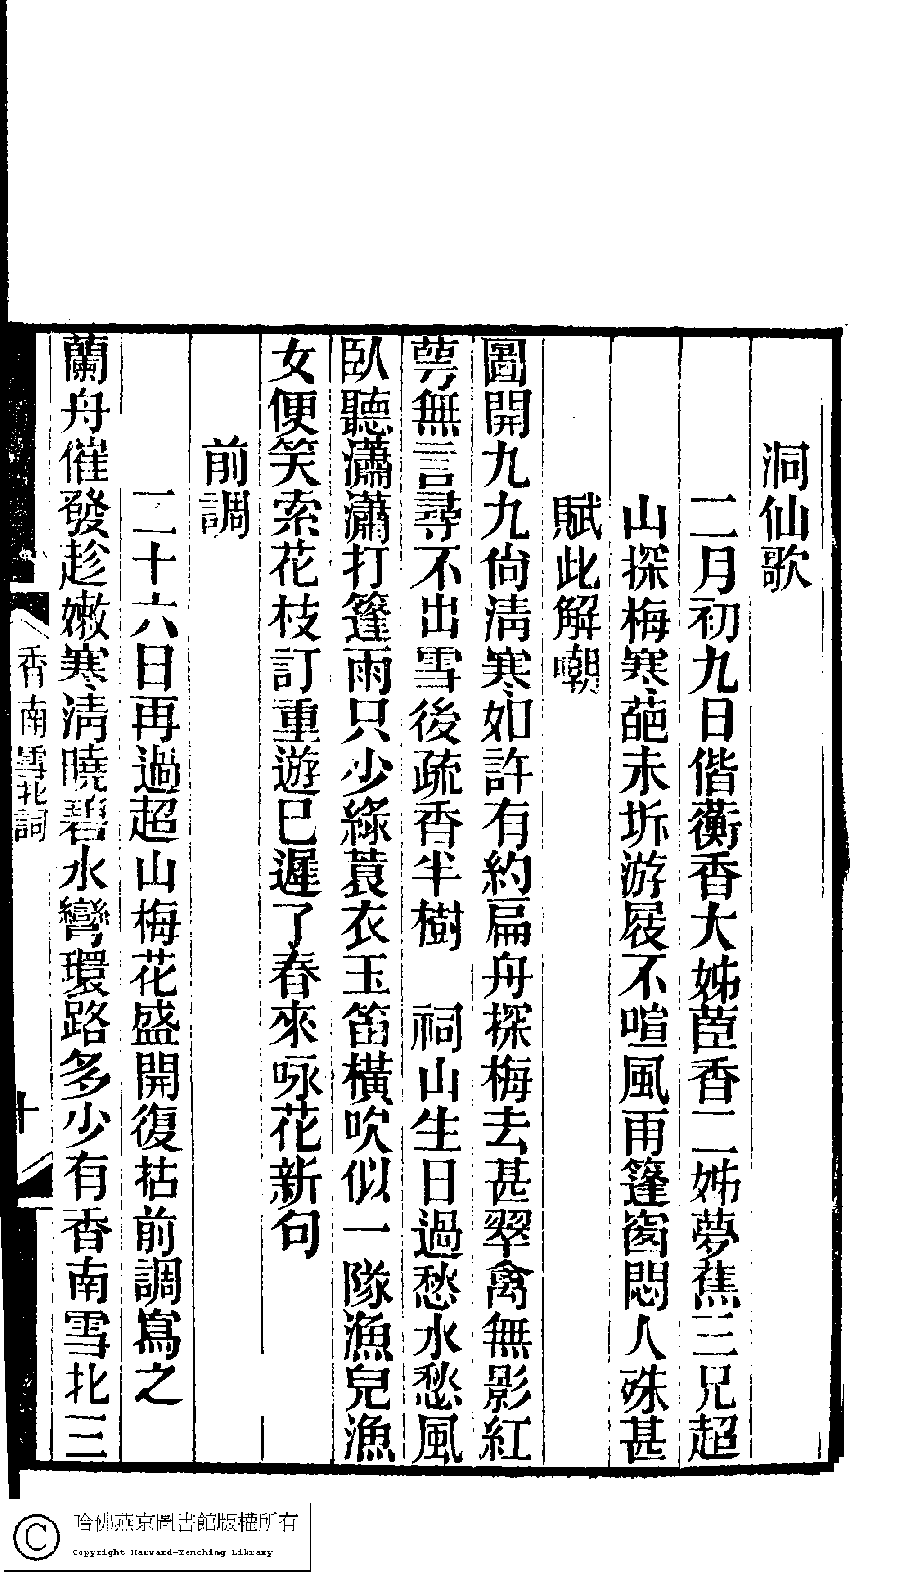 洞仙歌
二月初九日偕蘅香大姊茝香二姊夢蕉三兄超
山探梅寒葩未坼游屐不喧風雨篷窗悶人殊甚
賦此解嘲
圖開九九尙淸寒如許有約扁舟探梅去甚翠禽無影紅
萼無言尋不出雪後疏香半樹　祠山生日過愁水愁風
臥聽瀟瀟打篷雨只少綠蓑衣玉笛橫吹似一隊漁兒漁
女便笑索花枝訂重遊巳遲了春來咏花新句
前調
二十六日再過超山梅花盛開復拈前調寫之
蘭舟催發趁嫩寒淸曉碧水彎環路多少有香南雪北三
香南雪北詞
十
哈佛燕京圖書館版權所有
Copyright Harvard-Yenching Library